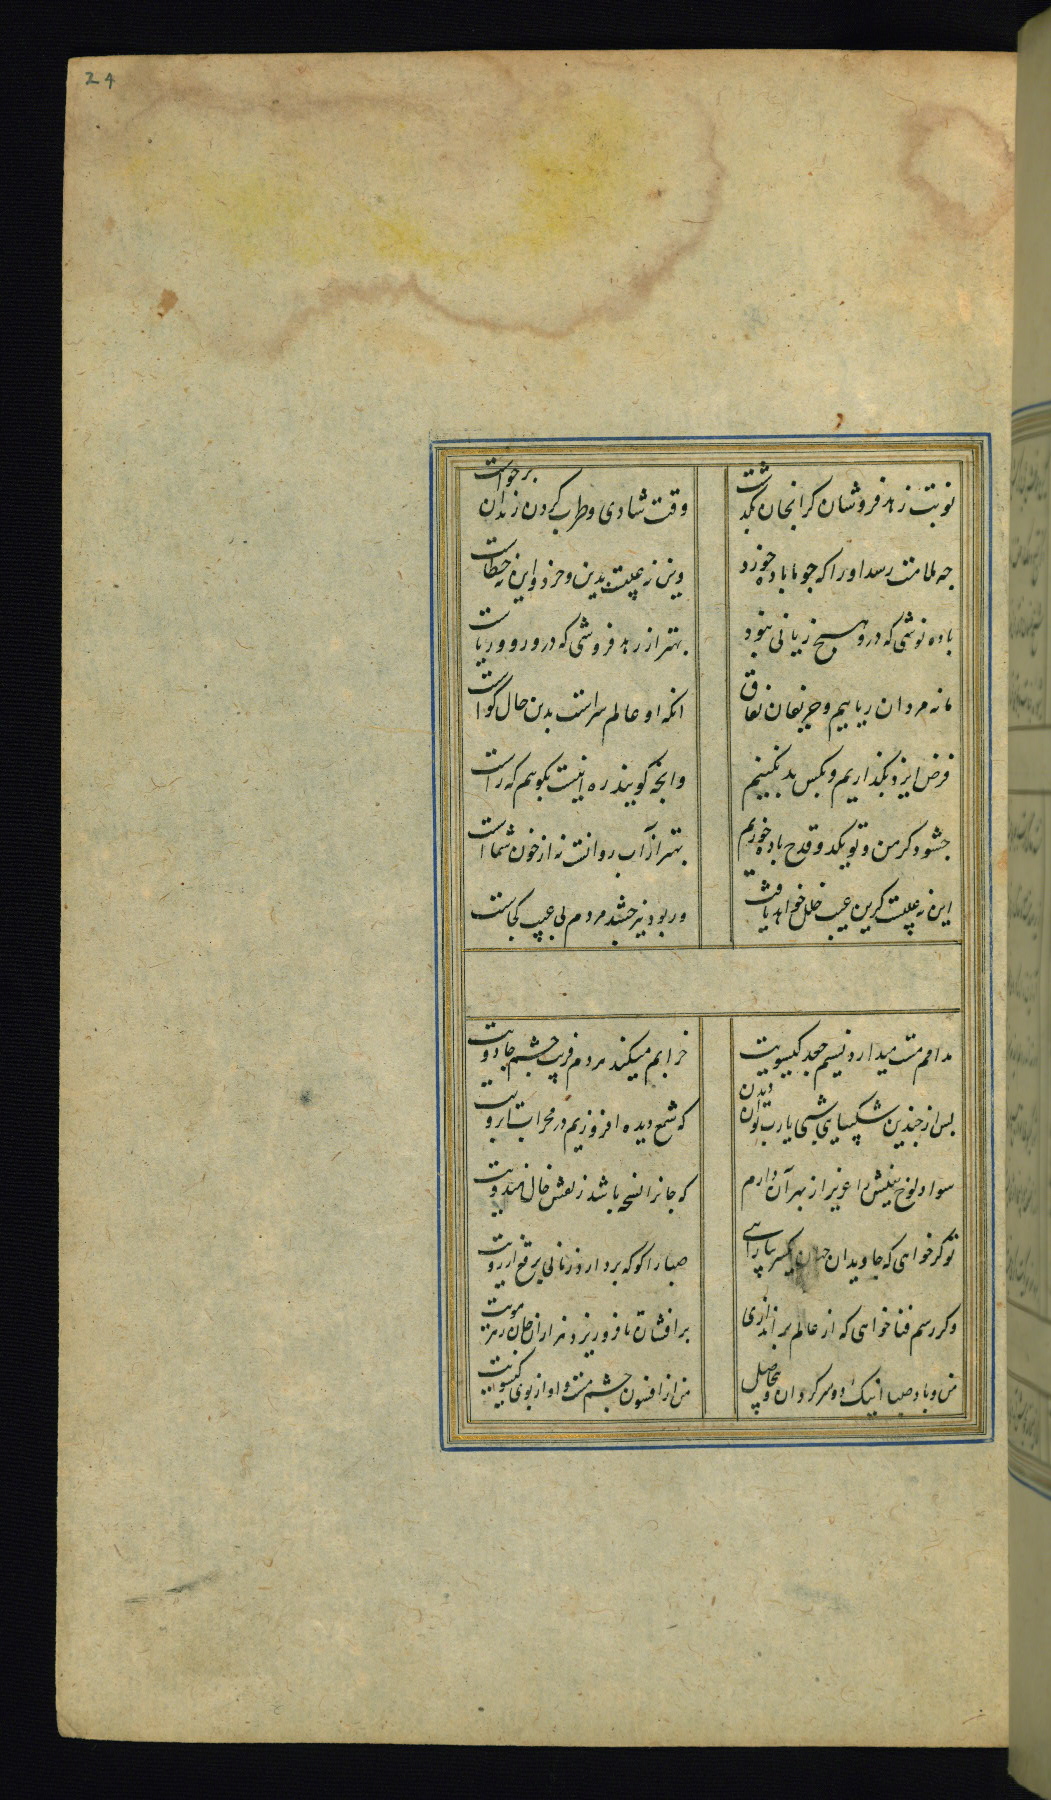 24
نوبت زهد فروشان کرانجان بکذشت
وقت شادی و طرب کردن رندان برخواست
چه ملامت رسد او را که چو ما باده خورد
وین نه عیبست بدین و خرد و این نه خطاست
باده نوشی که درو هیچ زیانی نبود
بهتر از زهد فروشی که درو روی و ریاست
ما نه مردان ریاییم و حریفان نفاق
انکه او عالم سراست بدین حال کواست
فرض ایزد بکذاریم و بکس بد نکنیم
وانچه کویند ره اینست بکویم که راست
چشود کر من و تو یکد و قدح باده خوریم
بهتر از آب روانست نه از خون شماست
این نه عیبست کزین عیب خلل خواهد یافت
ور بود نیز چشد مردم بی عیب کجاست
مدامم مست میدارد نسیم جعد کیسویت
خرابم میکند مردم فریب چشم جادویت
بس از چندین شکیبایی شبی یارب توان دیدن
که شمع دیده افروزیم در محراب ابرویت
سواد لوح بینش را عزیز از بهر آن دارم
که جانرا نسخه باشد ز نقش خال هندویت
تو کر خواهی که جاویدان جهان یکسر بیارایی
صبا را کو که بردارد زمانی برقع از رویت
وکر رسم فنا خواهی که از عالم براندازی
برافشان تا فرو ریزد هزاران جان ز هر مویت
من و باد صبا انیک دو سرکردان بیحاصل
من از افسون چشم مست و او از بوی کیسویت